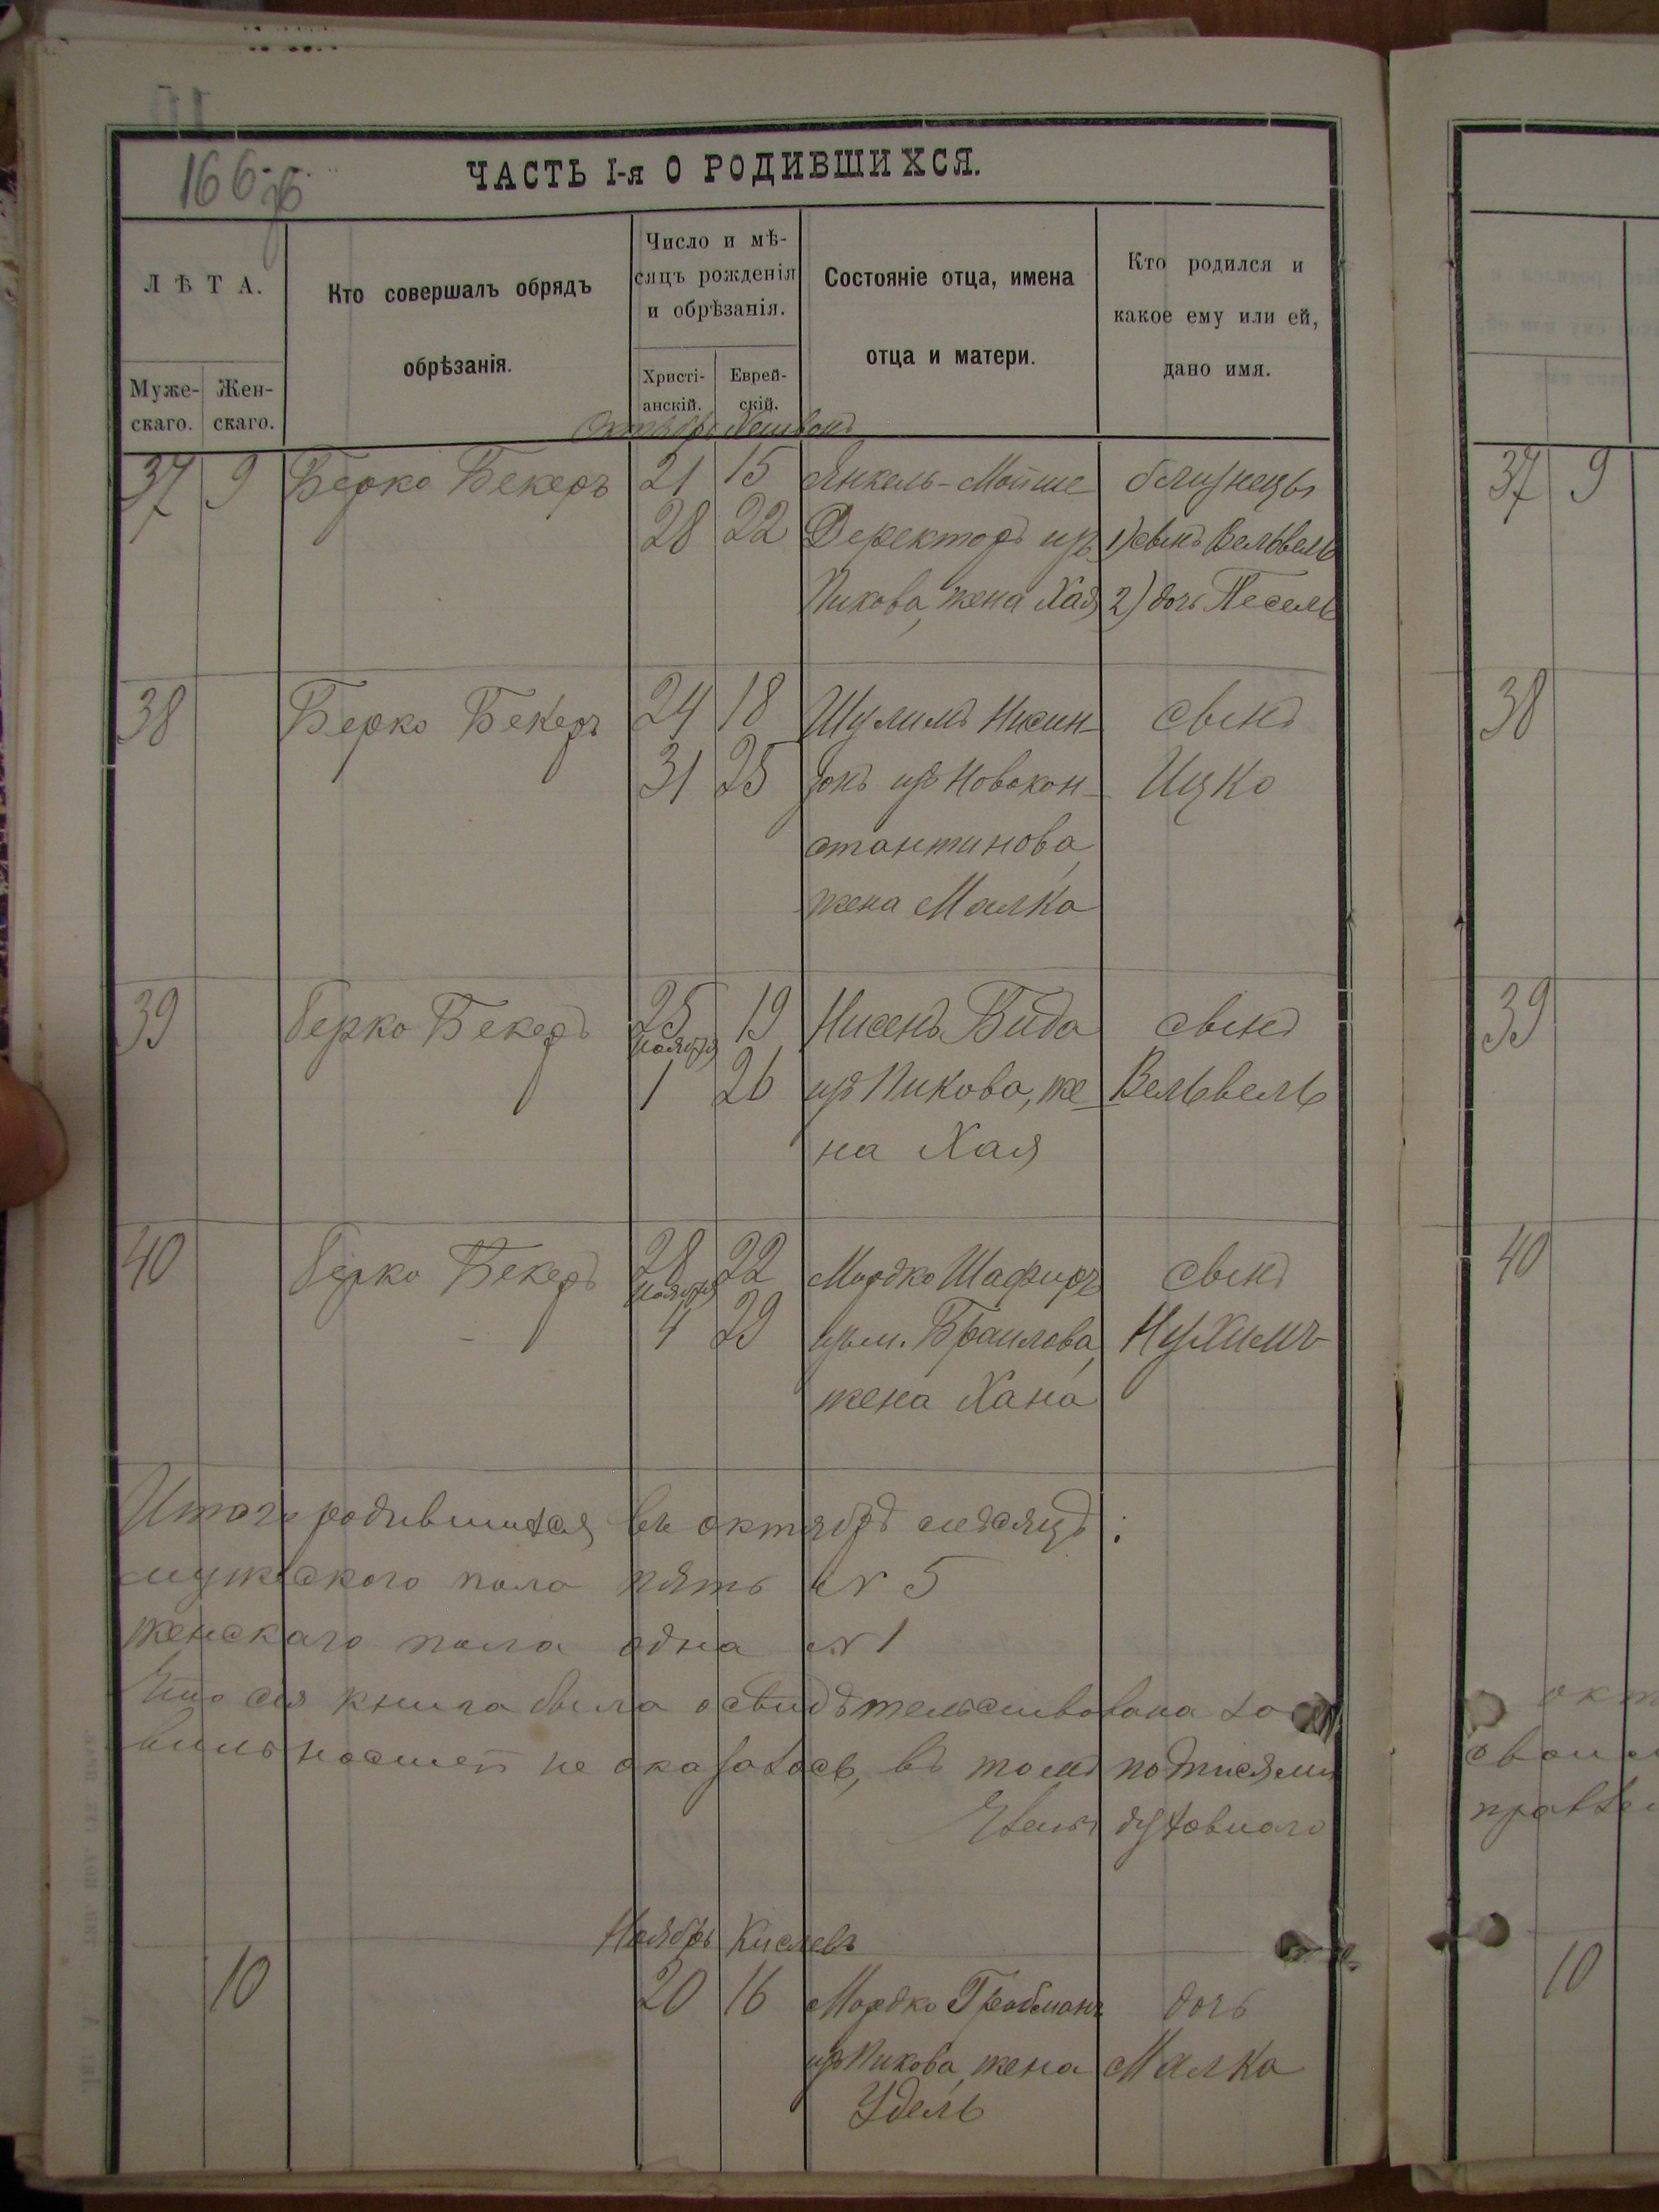 166 об
ЧАСТЬ I-я О РОДИВШИХСЯ.
ЛѢТА.
Муже-
скаго.
Жен-
скаго.
Кто совершалъ обрядъ
обрѣзанія.
Число и мѣ-
сяцъ рожденія
и обрѣзанія.
Христі-
анскій.
Еврей-
скій.
Состояніе отца, имена
отца и матери.
Кто родился и
какое ему или ей,
дано имя.
Октябрь Хешвонъ
37 9 Берко Бекеръ 21 15 Янкель-Мойше близнецы
28 22 Деректоръ изъ 1) сынъ Вельвель
Пикова, жена Хая 2) дочь Песель
38 Берко Бекеръ 24 18 Шулимъ Нисин- сынъ
31 25 зонъ изъ Новокон- Ицко
стантинова,
жена Малка
39 Берко Бекеръ 25 19 Нисенъ Бида сынъ
Ноября
1 26 изъ Пикова, же- Вельвель
на Хая
40 Берко Бекеръ 28 22 Мордко Шафиръ сынъ
Ноября
4 29 изъ м. Браилова, Нухимъ
жена Хана
Итого родившихся въ октябрѣ мѣсяцѣ:
мужескаго пола пять № 5
женскаго пола одна № 1
Что сія книга была освидѣтельствована
не оказалось, въ томъ подписями
духовнаго
Ноябрь Кислевъ
10 20 16 Мордко Грабманъ дочь
изъ Пикова, жена Малка
Удель
37 9
38
39
40
окт
свои
10